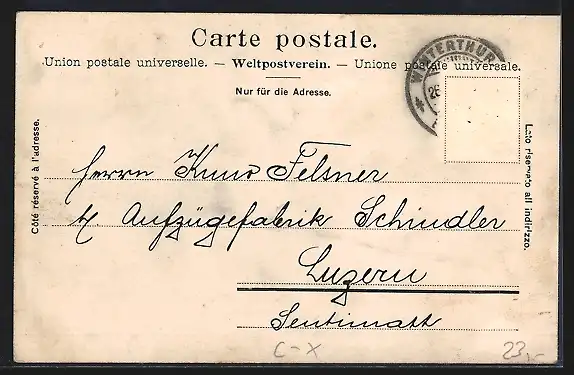 Carte postale.
Union postale universelle. — Weltpostverein. — Unione postale universale.
Nur für die Adresse.
WINTERTHUR
26
Côté réservé à l'adresse.
Lato riservato all indirizzo.
Herrn Kuno Felsner
Aufzügefabrik Schindler
Luzern
Sentimatt
C-X
23,-